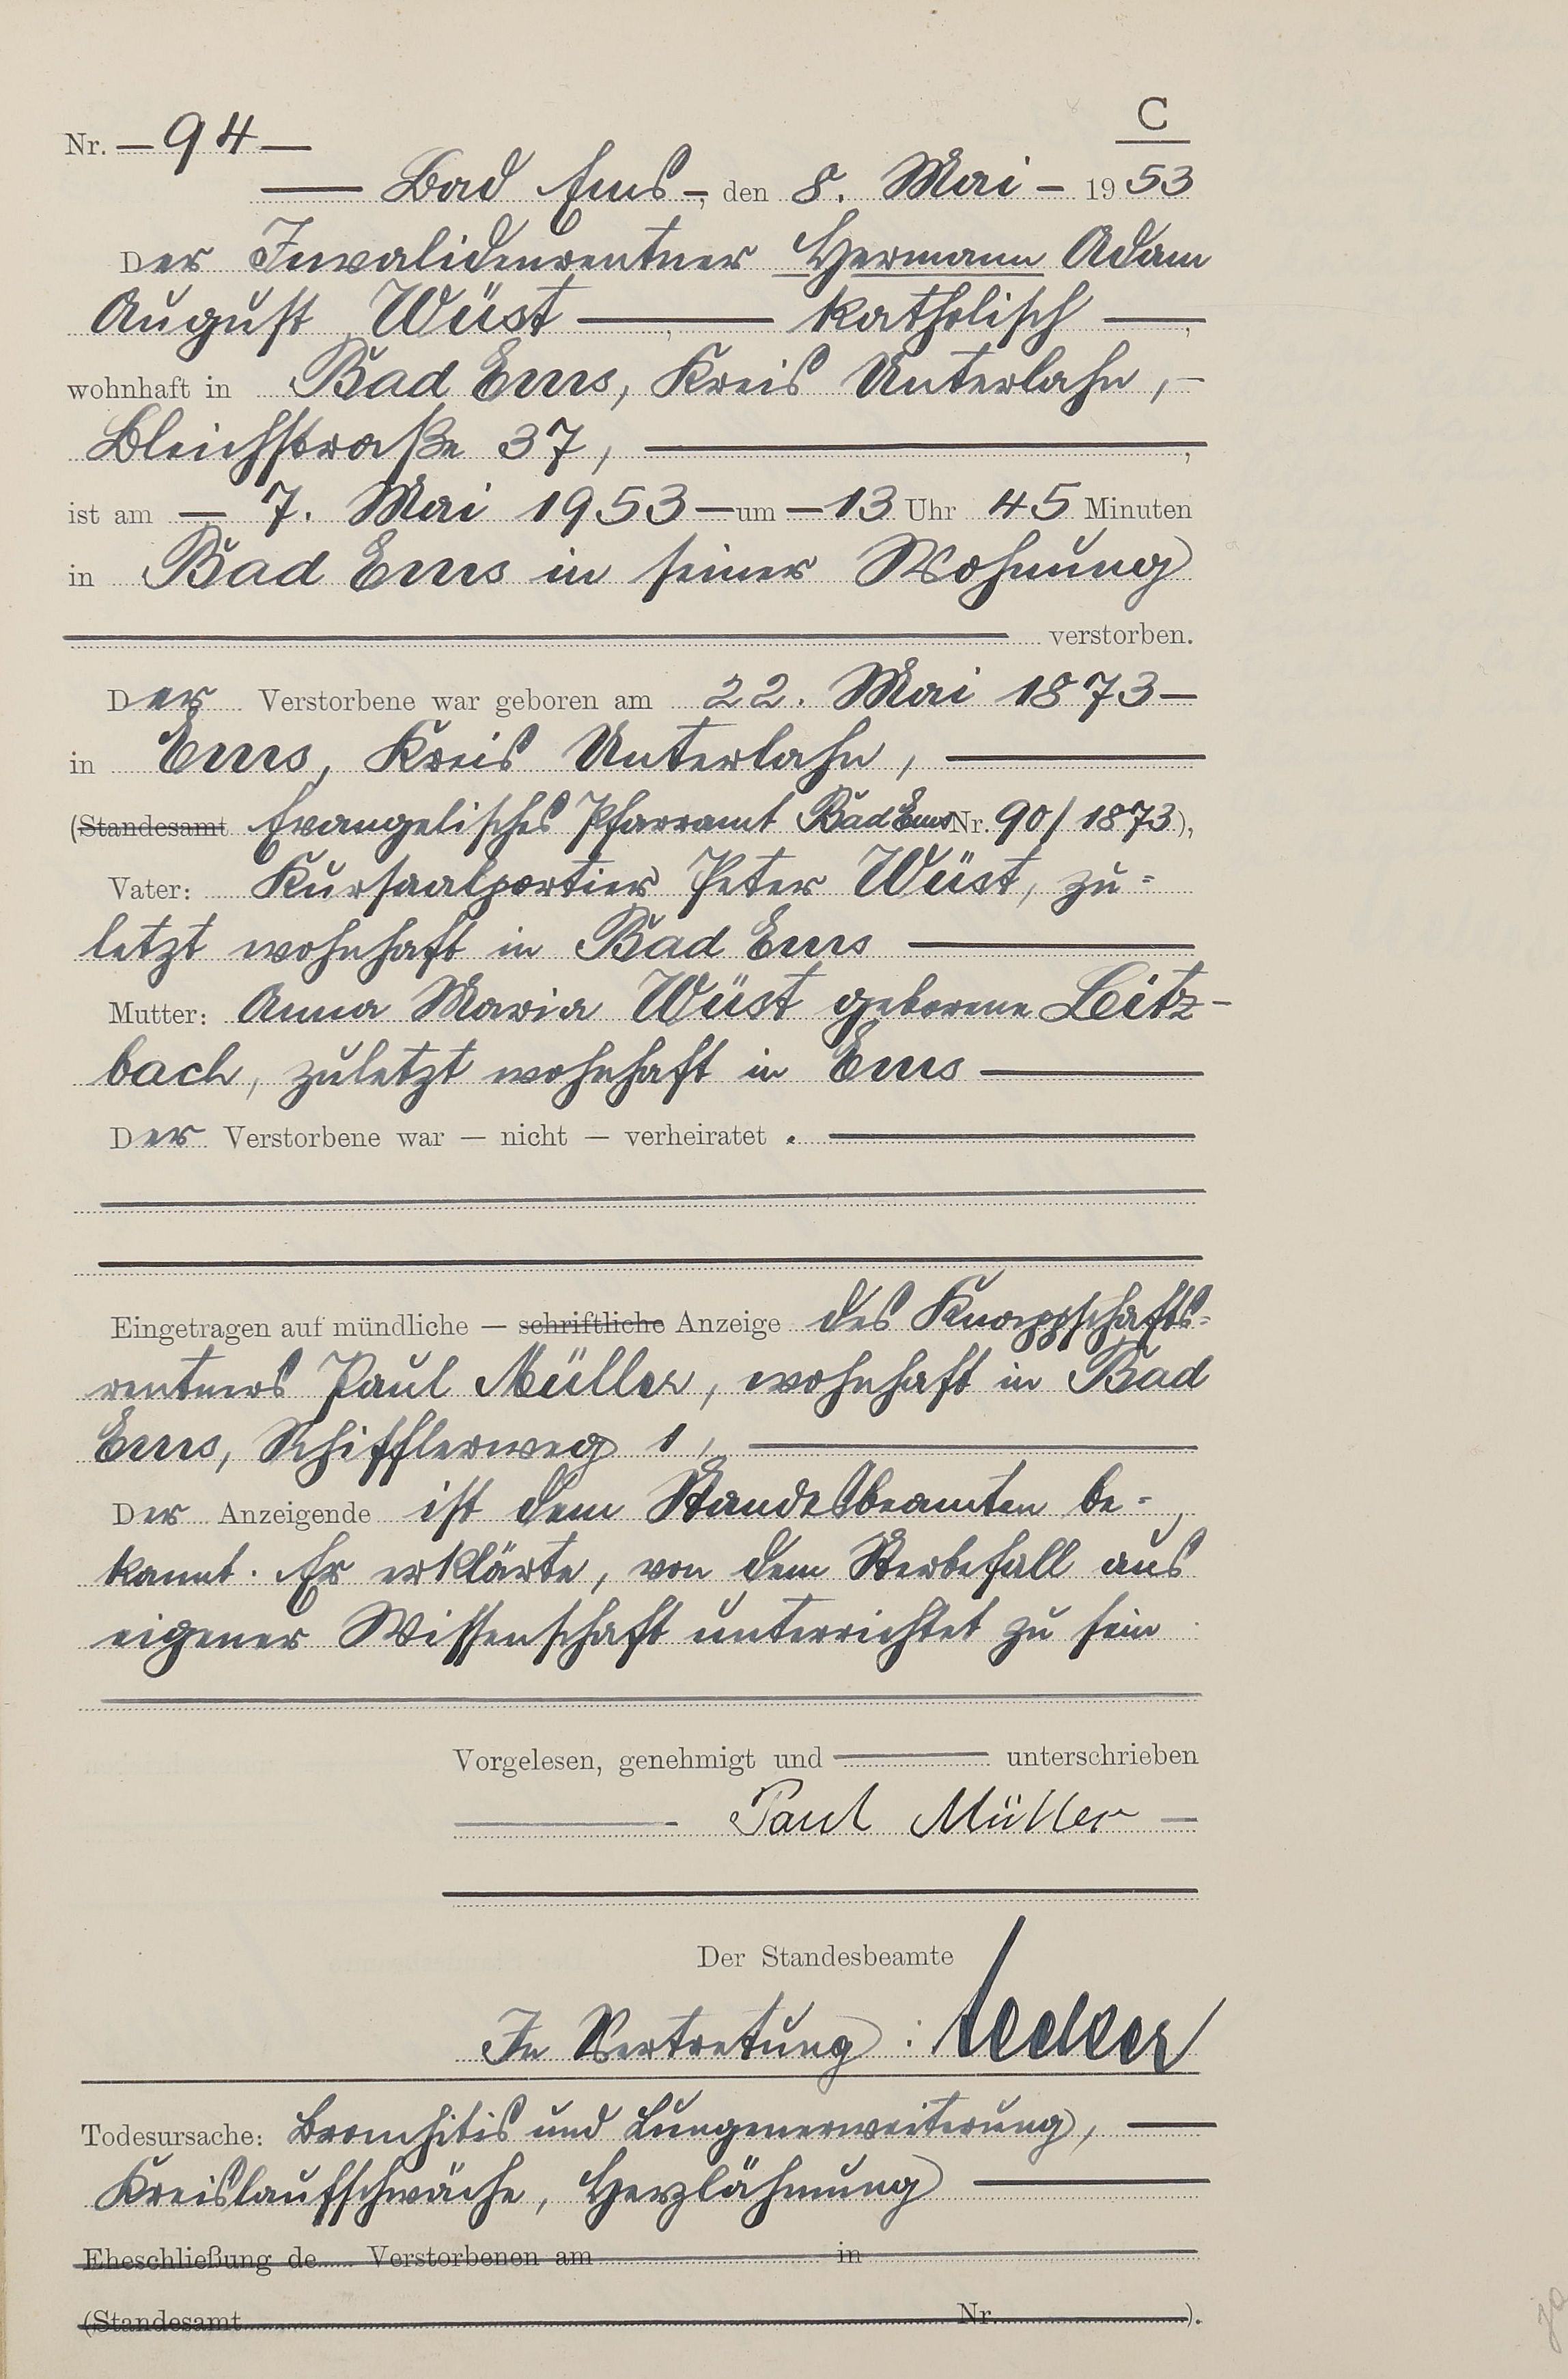 C
Nr. — 94 —
— Bad Ems —, den 8. Mai — 1953
Der Invalidenrentner Hermann Adam
August Wüst —, katholisch —,
wohnhaft in Bad Ems, Kreis Unterlahn, —
Bleichstraße 37, —,
ist am — 7. Mai 1953 — um — 13 Uhr 45 Minuten
in Bad Ems in seiner Wohnung
verstorben.
Der Verstorbene war geboren am 22. Mai 1873 —
in Ems, Kreis Unterlahn, —
(Standesamt Evangelisches Pfarramt Bad Ems Nr. 90/1873),
Vater: Kursaalportier Peter Wüst, zu=
letzt wohnhaft in Bad Ems —
Mutter: Anna Maria Wüst geborene Leitz-
bach, zuletzt wohnhaft in Ems —
Der Verstorbene war — nicht — verheiratet . —
Eingetragen auf mündliche — schriftliche Anzeige des Knappschafts=
rentners Paul Müller, wohnhaft in Bad
Ems, Schifflerweg 1, —
Der Anzeigende ist dem Standesbeamten be=
kannt. Er erklärte, von dem Sterbefall aus
eigener Wissenschaft unterrichtet zu sein
Vorgelesen, genehmigt und — unterschrieben
— Paul Müller —
Der Standesbeamte
In Vertretung:
Todesursache: Bronchitis und Lungenerweiterung, —
Kreislaufschwäche, Herzlähmung —
Eheschließung de Verstorbenen am in
(Standesamt Nr. ).